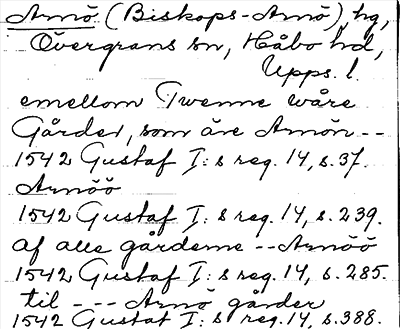 Arnö (Biskops-Arnö), hg,
Övergrans sn, Håbo hd,
Upps. l.
emellom Twenne wåre
Gårder, som äre Arnön --
1542 Gustaf I: s reg. 14, s. 37.
Arnöö
1542 Gustaf I: s reg. 14, s. 239.
af alle gårderne -- Arnöö
1542 Gustaf I: s reg. 14, s. 285.
til --- Arnö gårder
1542 Gustaf I: s reg. 14, s. 388.